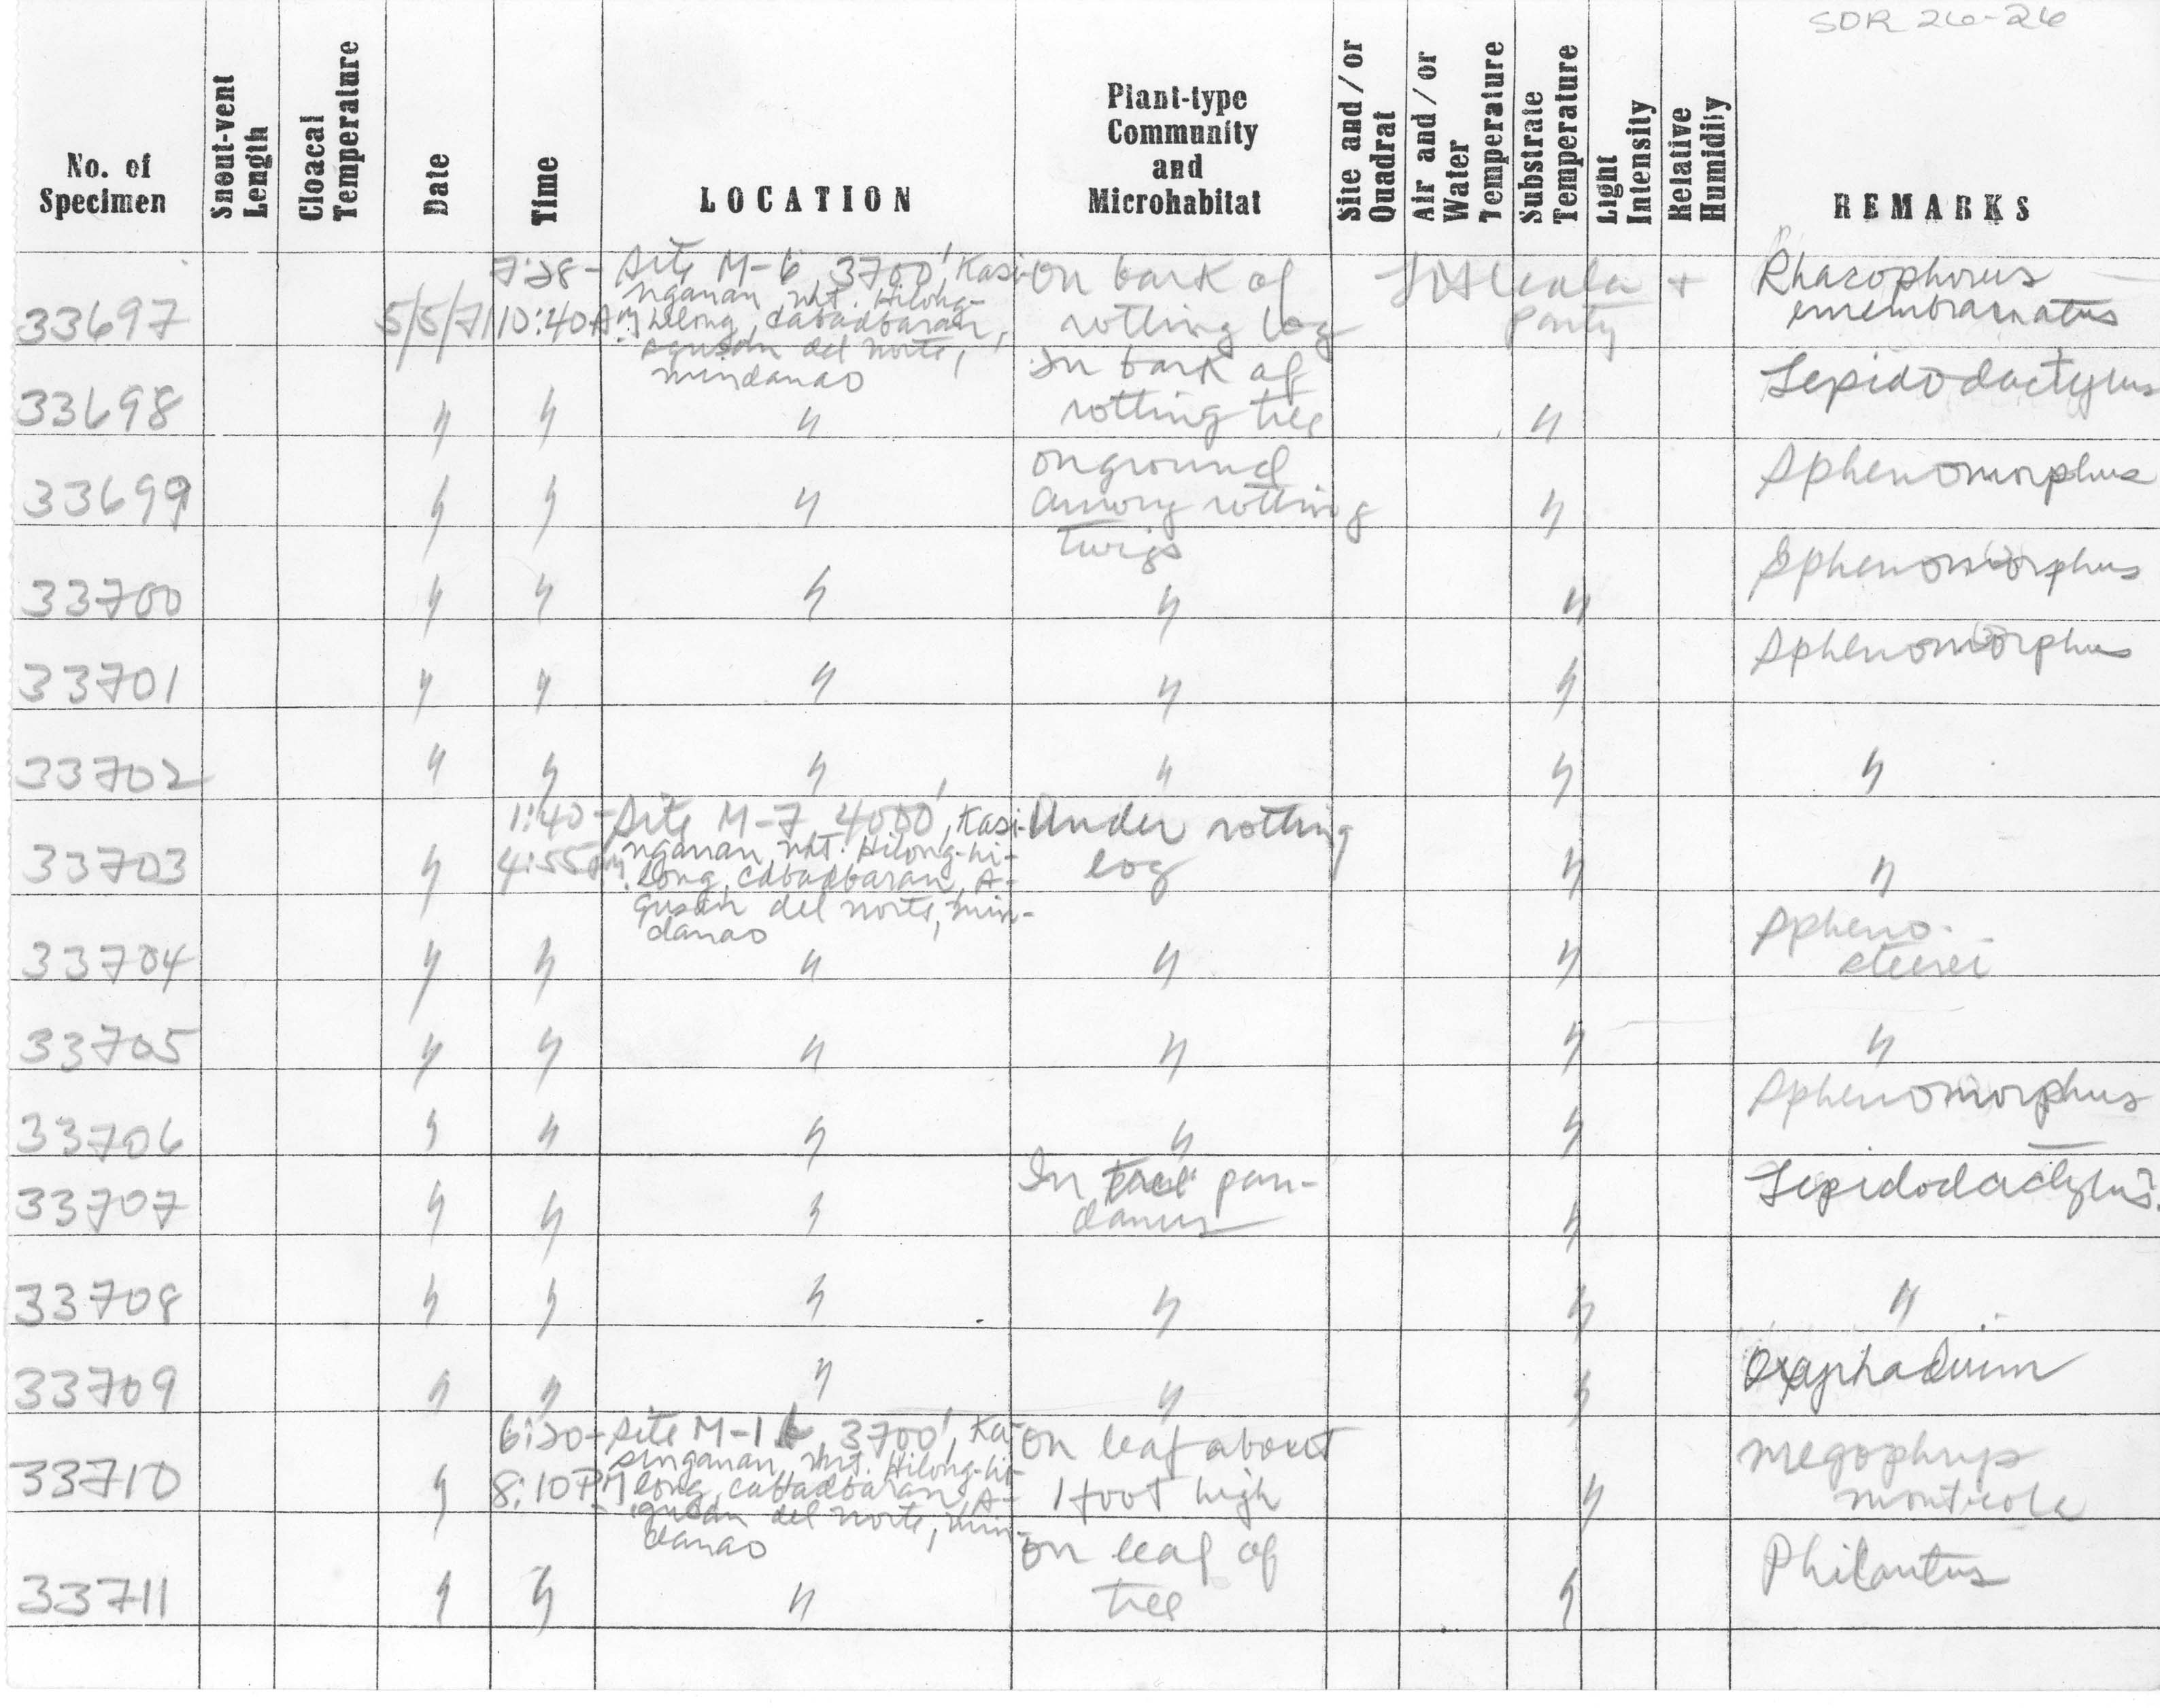 SDR 26-26
No. of Specimen
Snout-vent Length
Cloacal Temperature
Date
Time
LOCATION
Plant-type Community and Microhabitat
Site and/or Quadrat
Air and/or Water Temperature
Substrate Temperature
Light Intensity
Relative Humidity
REMARKS
33697 5/5/71 7:28-10:40 AM Site M-6 3700', Kasinganan, Mt. Hilong-hilong, Cabadbaran, Agusan del Norte, Mindanao On bark of rotting log LCAlcala + party Rhacophorus emembranatus
33698 " " " In bark of rotting tree " Lepidodactylus
33699 " " " on ground among rotting twigs " Sphenomorphus
33700 " " " " " Sphenomorphus
33701 " " " " " Sphenomorphus
33702 " " " " " "
33703 " 1:40-4:55 PM Site M-7 4000', Kasinganan, Mt. Hilong-hilong, Cabadbaran, Agusan del Norte, Mindanao Under rotting log " "
33704 " " " " " Spheno. steerei
33705 " " " " " "
33706 " " " " " Sphenomorphus
33707 " " " In pandanus " Lepidodactylus?
33708 " " " " " "
33709 " " " " "
33710 " 6:20-8:10 PM Site M-1 3700', Kasinganan, Mt. Hilong-hilong, Cabadbaran, Agusan del Norte, Mindanao On leaf about 1 foot high " Megophrys monticola
33711 " " " On leaf of tree " Philautus